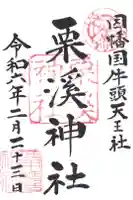 因幡国牛頭天王社
栗溪神社
令和六年二月二十三日